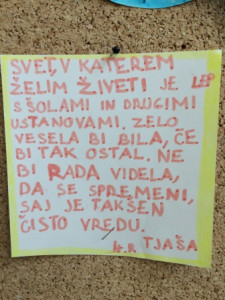 SVET, V KATEREM
ŽELIM ŽIVETI JE LEP
S ŠOLAMI IN DRUGIMI
USTANOVAMI. ZELO
VESELA BI BILA, ČE
BI TAK OSTAL. NE
BI RADA VIDELA,
DA SE SPREMENI,
SAJ JE TAKŠEN
ČISTO VREDU.
TJAŠA